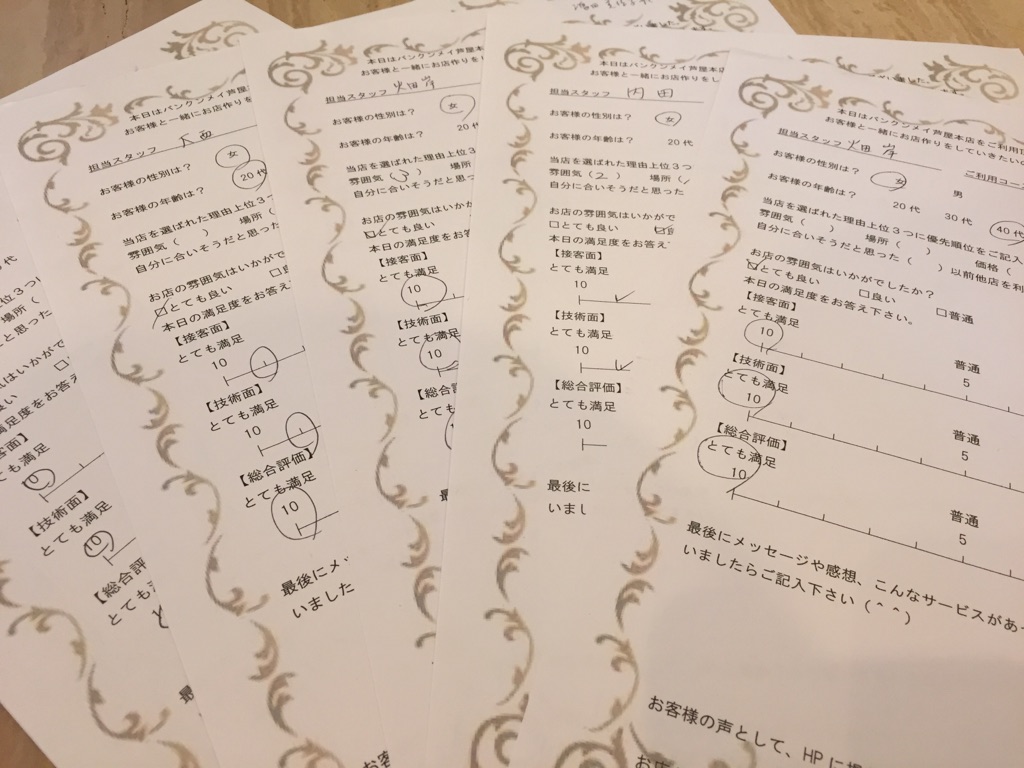 本日はバンクンメイ芦屋
お客様と一緒にお店作りを
担当スタッフ
お客様の性別は？ 女
お客様の年齢は？ 20代
当店を選ばれた理由上位3つ
雰囲気（ ） 場所（
自分に合いそうだと思った
お店の雰囲気はいかがで
とても良い □良
本日の満足度をお答え
【接客面】
とても満足
10
【技術面】
とても満足
10
【総合評価】
とても満足
10
最後にメ
いました
本日はバンクンメイ芦屋本
お客様と一緒にお店作りをし
担当スタッフ 畑岸
お客様の性別は？ 女
お客様の年齢は？ 20代
当店を選ばれた理由上位3つ
雰囲気（3） 場所
自分に合いそうだと思っ
お店の雰囲気はいかが
□とても良い
本日の満足度をお答
【接客面】
とても満足
10
【技術面】
とても満足
10
【総合評価】
とても満足
本日はバンクンメイ芦屋本店
お客様と一緒にお店作りをし
担当スタッフ 内田
お客様の性別は？ 女
お客様の年齢は？ 20代
当店を選ばれた理由上位3つ
雰囲気（2） 場所（
自分に合いそうだと思った
お店の雰囲気はいかがで
□とても良い
本日の満足度をお答え
【接客面】
とても満足
10
【技術面】
とても満足
10
【総合評価】
とても満足
10
最後に
いまし
本日はバンクンメイ芦屋本店をご利用頂
お客様と一緒にお店作りをしていきたい
担当スタッフ 畑岸
ご利用コー
お客様の性別は？ 女 男
お客様の年齢は？ 20代 30代 40代
当店を選ばれた理由上位3つに優先順位をご記入
雰囲気（ ） 場所（ ） 価格（
自分に合いそうだと思った（ ）以前他店を利
お店の雰囲気はいかがでしたか？
とても良い □良い □普通
本日の満足度をお答え下さい。
【接客面】
とても満足 普通
10 5
【技術面】
とても満足 普通
10 5
【総合評価】
とても満足 普通
10 5
最後にメッセージや感想、こんなサービスがあっ
いましたらご記入下さい（＾＾）
お客様の声として、HPに掲
お店
代
立3つ
場所（
と思った
気はいかがで
満足度をお答え
客面】
とても満足
【技術面】
とても満足
10
【総合評
とても
最